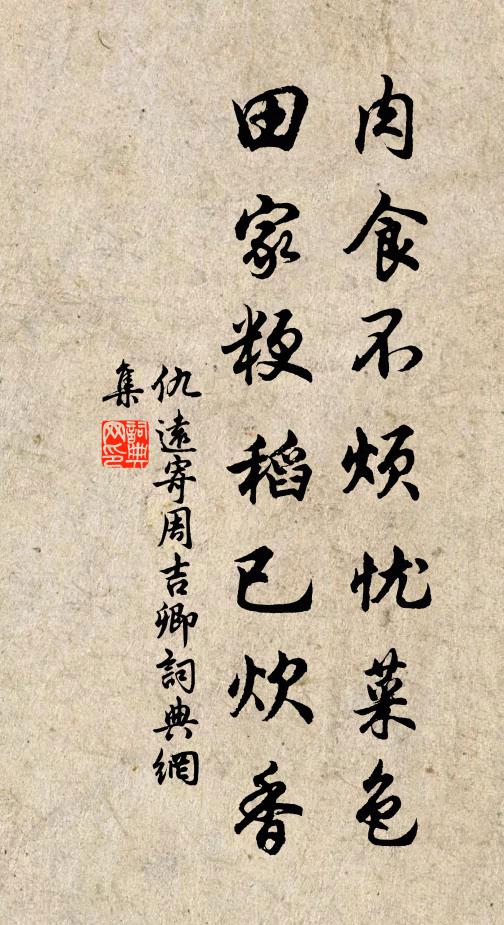 肉食不烦忧菜色
田家粳稻已炊香
仇遠寄周吉卿詞典網
集
詞典
网印